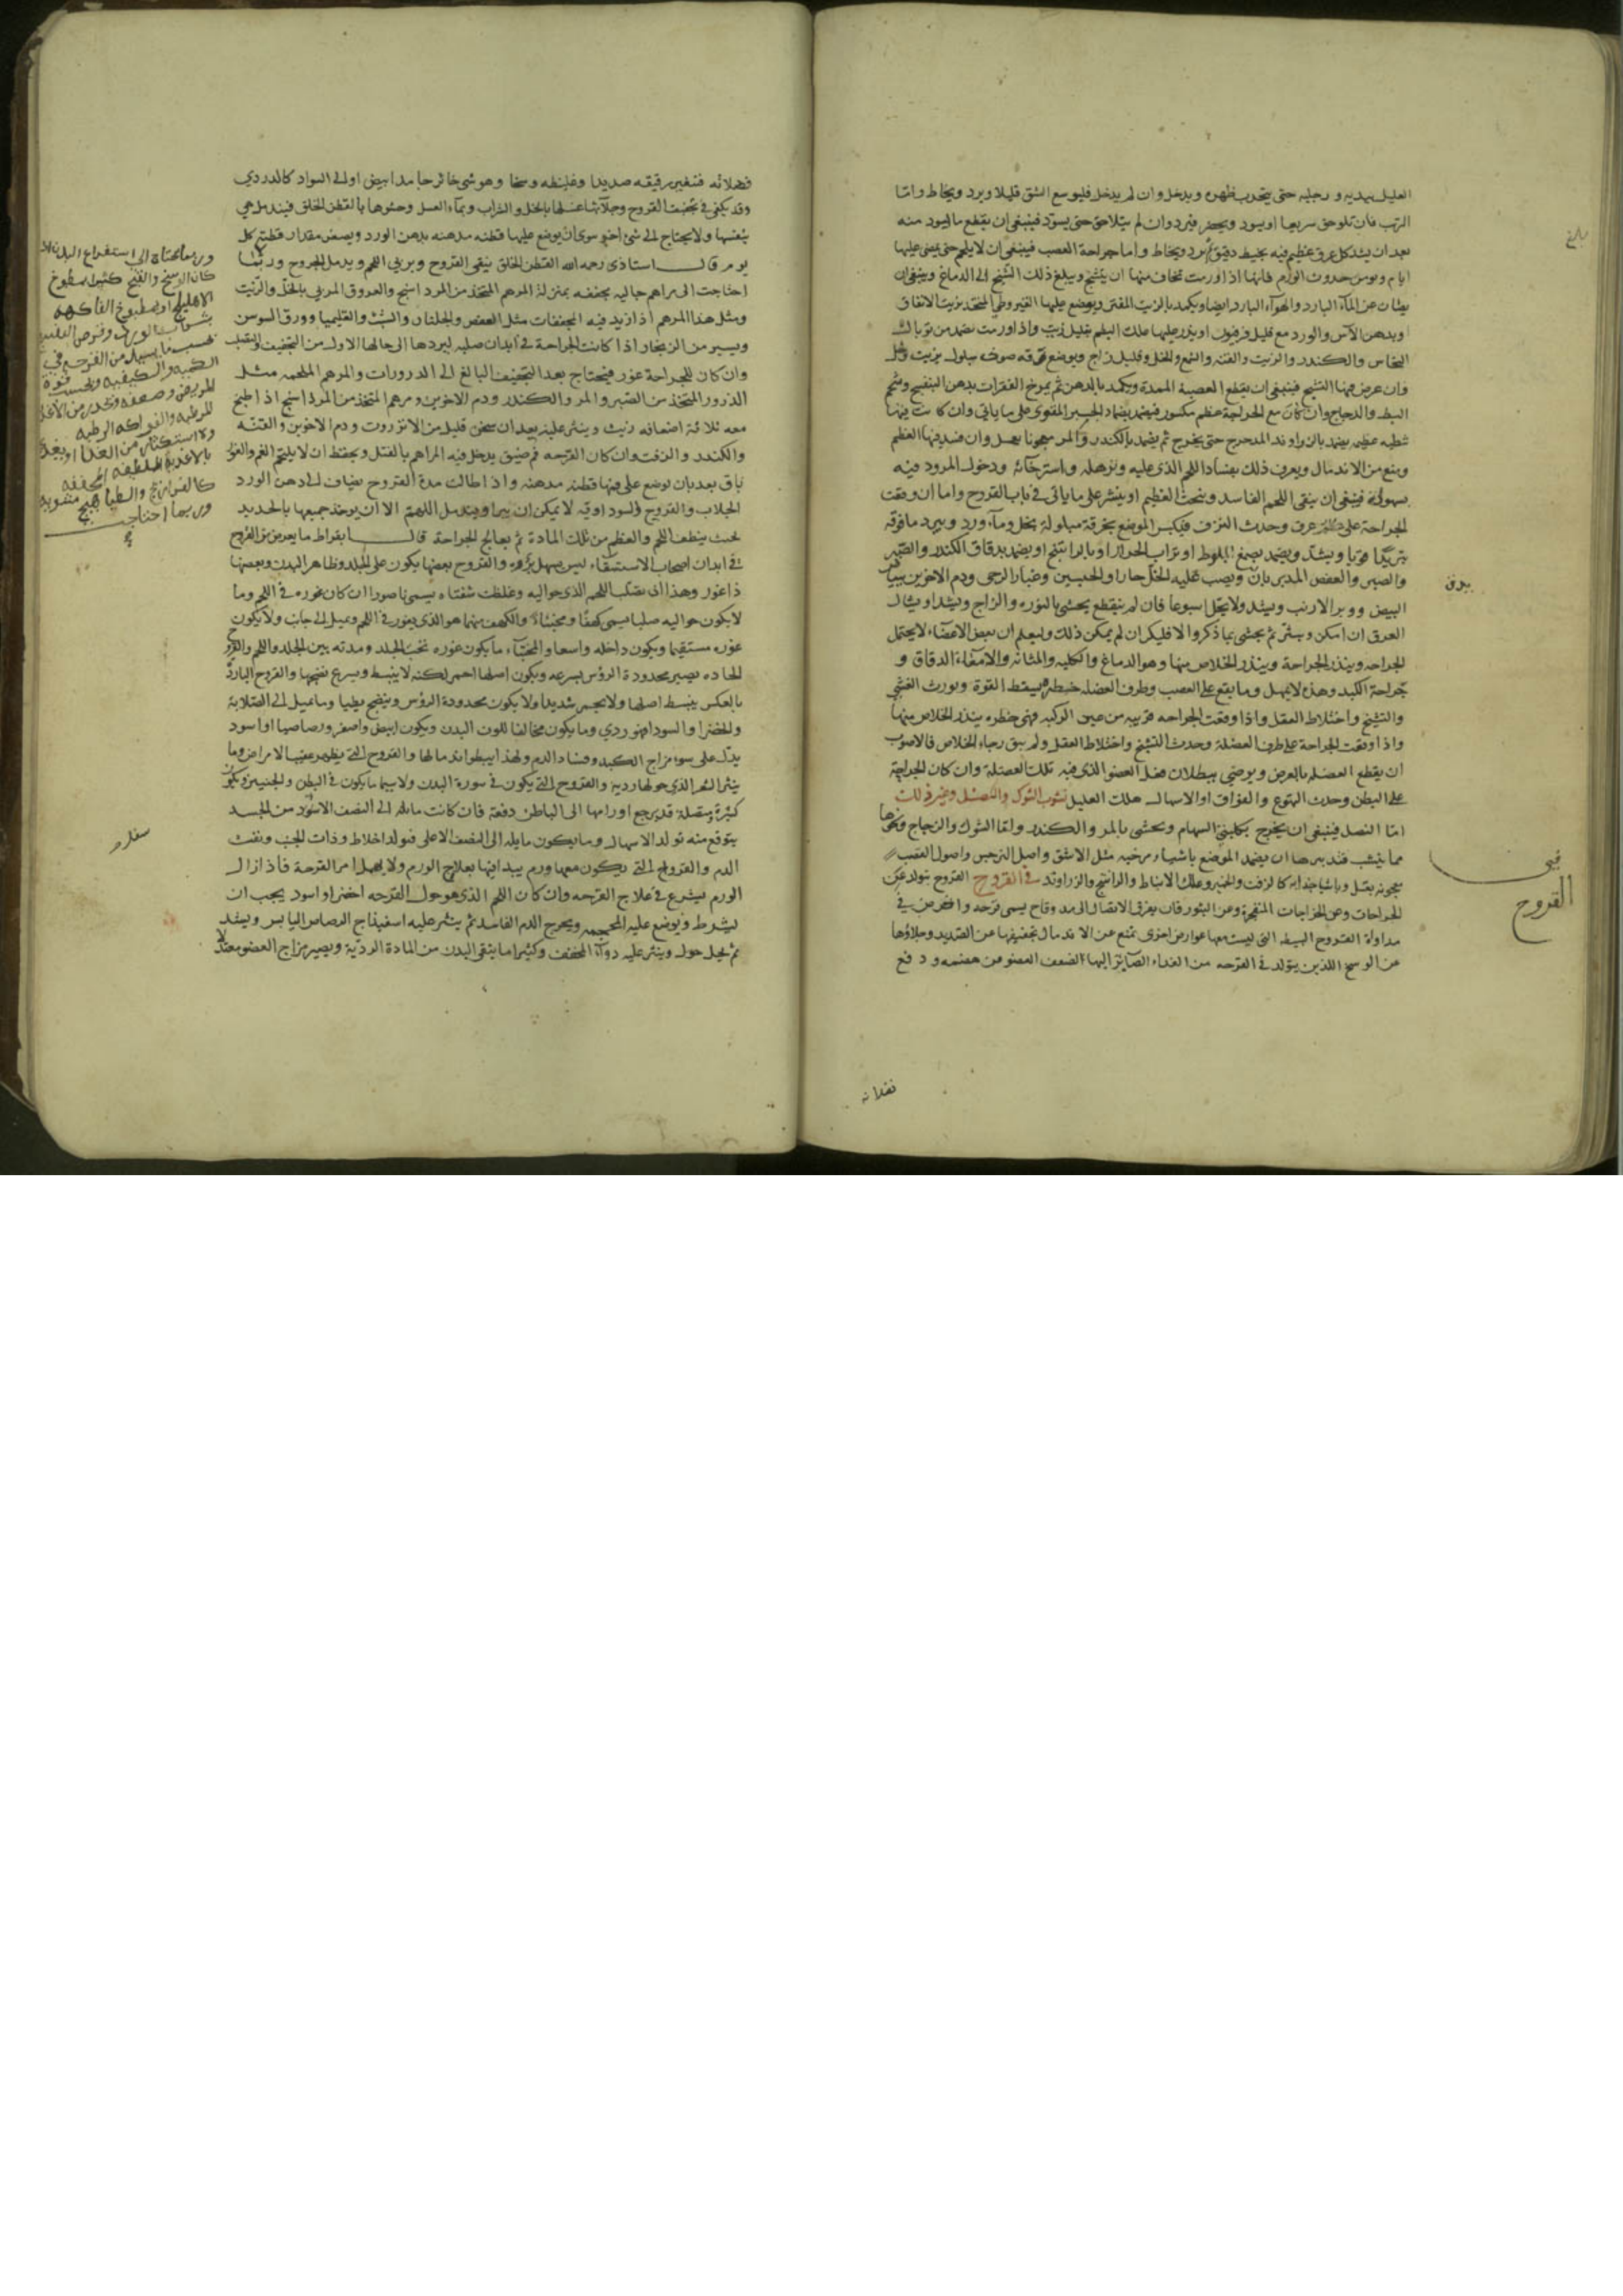 العليل بيديه و رجليه حتى يتحدب ظهره ويدخل وان لم يدخل فليوسع الشق قليلا ويرد ويخاط واما
الترب فان تلوحق سريعا او يسود ويخضر فيرد وان لم يتلاحق حتى يسود فينبغي ان يقطع ما يسود منه
بعد ان يشد كل عرق عظيم فيه بخيط دقيق ثم يرد ويخاط واما جراحة العصب فينبغي ان لا يلحم حتى يمضي عليها
ايام ويومن حدوث الورم فانها اذا ورمت يخاف منها ان يتشنج ويبلغ ذلك التشنج الى الدماغ وينبغي ان
يصان عن الماء البارد والهواء البارد ايضا ويكمد بالزيت المفتر ويوضع عليها القيروطي المتخذ بزيت الانفاق
وبدهن الآس والورد مع قليل فرفيون او يذر عليها علك البطم بقليل زيت واذا ورمت تضمد من توبال
النحاس والكندر والزيت والقنه والشمع والخل وقليل زاج ويوضع فوقه صوفه مبلول بزيت وخل
وان عرض منها التشنج فينبغي ان يقطع العصبة الممدة ويكمد بالدهن ثم يمرخ الفقرات بدهن البنفسج وشحم
البط والدجاج وان كان مع الجراحة عظم مكسور فيضمد بضماد الجبر المقوى على ما ياتي وان كانت فيها
شظيه عظيمه يضمد بالزراوند المدحرج حتى يخرج ثم يضمد بالكندر والمر معجونا بعسل وان فسد فيها العظم
ومنع من الاندمال ويعرف ذلك بفساد اللحم الذي عليه وترهله واسترخائه ودخول المرود فيه
بسهولة فينبغي ان ينقى اللحم الفاسد وينحت العظم او ينشر على ما ياتي في باب القروح واما ان وقعت
الجراحة على عرق وحدث النزف فليكبس الموضع بخرقة مبلولة بخل وماء ورد ويبرد ما فوقه
تبريدا قويا ويشد ويضمد بصمغ البلوط او تراب الجرار او بالراتينج او يضمد بدقاق الكندر والصبر
والصبر والعفص المدبر بان ويصب عليه الخل حارا والجبسين وغبار الرحى ودم الاخوين ببياض
البيض ووبر الارنب ويشد ولا يحل اسبوعا فان لم ينقطع يحشى بالنوره والزاج ويشد او يشال
العرق ان امكن ويبتر ثم يحشى بما ذكر والا فليكو ان لم يمكن ذلك وليعلم ان بعض الاعضاء لا يحتمل
الجراحه ويندر الجراحة ويندر الخلاص منها وهو الدماغ والكليه والمثانه والامعاء الدقاق و
جراحة الكبد وهذه لا يمهل وما يقع على العصب وطرف العضله خطر ويسقط القوة ويورث الغشي
والتشنج واختلاط العقل واذا وقعت الجراحه قريبه من عين الركبه فهي خطره يندر الخلاص منها
واذا وقعت الجراحة على طرف العضلة وحدث التشنج واختلاط العقل ولم يبق رجاء الخلاص فالاصوب
ان يقطع العضله بالعرض ويرضى ببطلان فعل العضو الذي فيه تلك العضلة وان كان الجراحة
على البطن وحدث التهوع والفواق او الاسهال هلك العليل نشوب الشوك والنصل وغير ذلك
اما النصل فينبغي ان يخرج بكلبتي السهام ويحشى بالمر والكندر واما الشوك والزجاج ونحوها
مما ينشب فتدبيرها ان يضمد الموضع باشياء مرخيه مثل الاشق واصل النرجس واصول القصب
معجونه بعسل وباشيا جذابه كالزفت والخمير وعلك الانباط والراتينج والزراوند في القروح القروح يتولد عن
الجراحات وعن الخراجات المنفجرة وعن البثور فان تفرق الاتصال الى مد وقاح يسمى قرحه والغرض في
مداواة القروح البسيطه التي ليست معها عوارض اخرى تمنع عن الاندمال تجفيفها عن الصديد وجلاؤها
عن الوسخ اللذين يتولد في القرحه من الغذاء الصائر اليها لضعف العضو من هضمه و دفع
بلغ
في
القروح
فضلاته فتغير رقيقه صديدا وغليظه وسخا وهو شي خاثر جامد ابيض او الى السواد كالدردي
وقد يكفي في تجفيف القروح وجلائها غسلها بالخل والشراب وبماء العسل وحشوها بالقطن الخلق فيندمل هي
بنفسها ولا يحتاج الى شي اخر سوى ان يوضع عليها قطنه مدهنه بدهن الورد وبصف مقدار قطع كل
يوم قال استاذي رحمه الله القطن الخلق ينقى القروح ويربي اللحم ويدمل الجروح وربما
احتاجت الى مراهم جاليه مجففه بمنزلة المرهم المتخذ من المرداسنج والعروق المربي بالخل والزيت
ومثل هذا المرهم اذا زيد فيه المجففات مثل العفص والجلنار والشب والقليميا وورق السوسن
ويسير من الزنجار اذا كانت الجراحة في ابدان صلبه ليردها الى حالها الاول من التجفيف والتصلب
وان كان للجراحة غور فيحتاج بعد التجفيف البالغ الى الذرورات والمرهم الملحمه مثل
الذرور المتخذ من الصبر والمر والكندر ودم الاخوين ومرهم المتخذ من المرداسنج اذا طبخ
معه ثلاثة اضعافه زيت وينثر عليه بعد ان سخن قليل من الانزروت ودم الاخوين والقنه
والكندر والزفت وان كان القرحه فم ضيق يدخل فيه المراهم بالفتل ويحفظ ان لا يلتحم الفم والغور
باق بعد بان توضع على فمها قطنه مدهنه واذا طالت مدة القروح يضاف الى دهن الورد
الجلاب والقروح السوداويه لا يمكن ان يبرا ويندمل اللهم الا ان يوخذ جميعها بالحديد
بحيث ينظف اللحم والعظم من تلك المادة ثم يعالج الجراحة قال ابقراط ما يعرض من القروح
في ابدان اصحاب الاستسقاء ليس يسهل برؤه والقروح بعضها يكون على الجلد وظاهر البدن وبعضها
ذا غور وهذا ان تصلب اللحم الذي حواليه وغلظت شفتاه يسمى ناصورا ان كان غوره في اللحم وما
لا يكون حواليه صلبا يسمى كهفا ومخبئا والكهف منهما هو الذي يغور في اللحم ويميل الى جانب ولا يكون
غوره مستقيما ويكون داخله واسعا والمخبأ ما يكون غوره تحت الجلد ومدته بين الجلد واللحم والقروح
الحاده يصير محدودة الرؤس بسرعه ويكون اصلها احمر لكنه لا ينبسط ويسرع نضجها والقروح البارد
بالعكس ينبسط اصلها ولا يحمر شديدا ولا يكون محدودة الرؤس وينضج بطيا وما يميل الى الصلابة
والخضرا والسودا فهو ردي وما يكون مخالفا للون البدن ويكون ابيض واصفر ورصاصيا او اسود
يدل على سوء مزاج الكبد وفساد الدم ولهذا يبطو اندمالها والقروح التي يظهر عقيب الامراض وما
ينثر الشعر الذي حولها رديه والقروح التي يكون في سورة البدن ولا سيما ما يكون في البطن والجنبين ويكون
كثيرة متصلة قد يرجع اورامها الى الباطن دفعة فان كانت مائله الى النصف الاسود من الجسد
يتوقع منه تولد الاسهال وما يكون مايله الى النصف الاعلى فتولد اخلاط وذات الجنب ونفث
الدم والقروح التي يكون معها ورم يبدا فيها بعلاج الورم ولا يهمل امر القرحة فاذا زال
الورم يشرع في علاج القرحه وان كان اللحم الذي هو حول القرحه اخضر او اسود يجب ان
يشرط ويوضع عليه المحجمه ويخرج الدم الفاسد ثم ينثر عليه اسفيذاج الرصاص اليابس ويشد
ثم يحل حوله وينثر عليه دواء المجفف وكثيرا ما ينقى البدن من المادة الرديه ويصير مزاج العضو معتدلا
وربما يحتاج الى استفراغ البدن اذا
كان الوسخ والقيح كثيرا بمطبوخ
الاهليلج او بمطبوخ الفاكهه
بشراب الورد وقرص البنفسج
بحسب ما يسيل من القرحه في
الكميه والكيفيه وبحسب قوة
المريض وضعفه وتحذير من الاغذيه
المرطبه والفواكه الرطبه
ولا استكثار من الغذا او يغذى
بالاغذية الملطفه المجففه
كالفراريج والطياهيج مشويه
وربما احتاجت